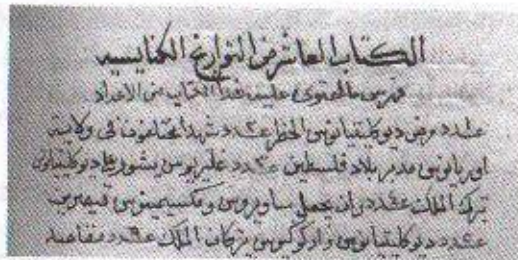 الكتاب العاشر من التواريخ الكنايسيه
فهرس ما يحتوى عليه هذا الكتاب من الاعداد
عدد مرض ديوكليتيانوس الخطر عدد شهدا مختلفون فى ولاية
اوربانوس مدبر بلاد فلسطين عدد غليريوس يشور على ديوكليتيانوس
بترك الملك عدد وان يجعل ساويروس ومكسيمينوس قيصرين
عدد ديوكليتيانوس واركوليوس يتركان الملك عدد